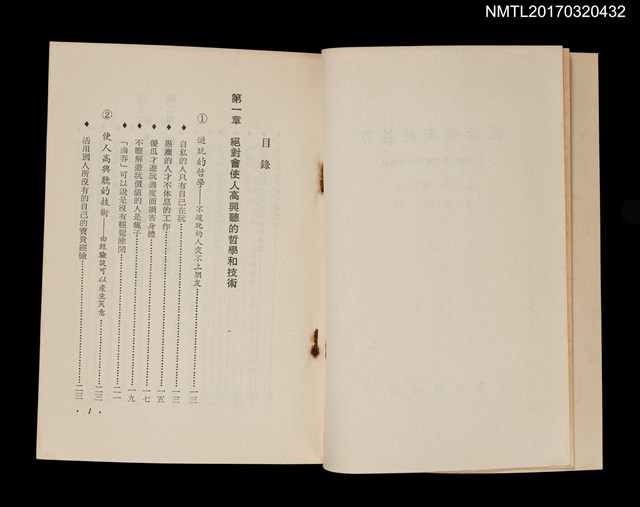 NMTL20170320432
目錄
第一章 絕對會使人高興聽的哲學和技術
① 遊玩的哲學——不遊玩的人交不上朋友…………一三
◆ 自私的人只有自己在玩…………一三
◆ 愚蠢的人才不休息的工作…………一五
◆ 傻瓜才遊玩過度而損害身體…………一七
◆ 不瞭解遊玩價值的人是瘋子…………一九
◆ 「鹵莽」可以說是沒有輕鬆餘閒…………二一
② 使人高興聽的技術——由經驗談可以產生笑意…………二三
◆ 活用別人所沒有的自己的寶貴經驗…………二三
• 1 •